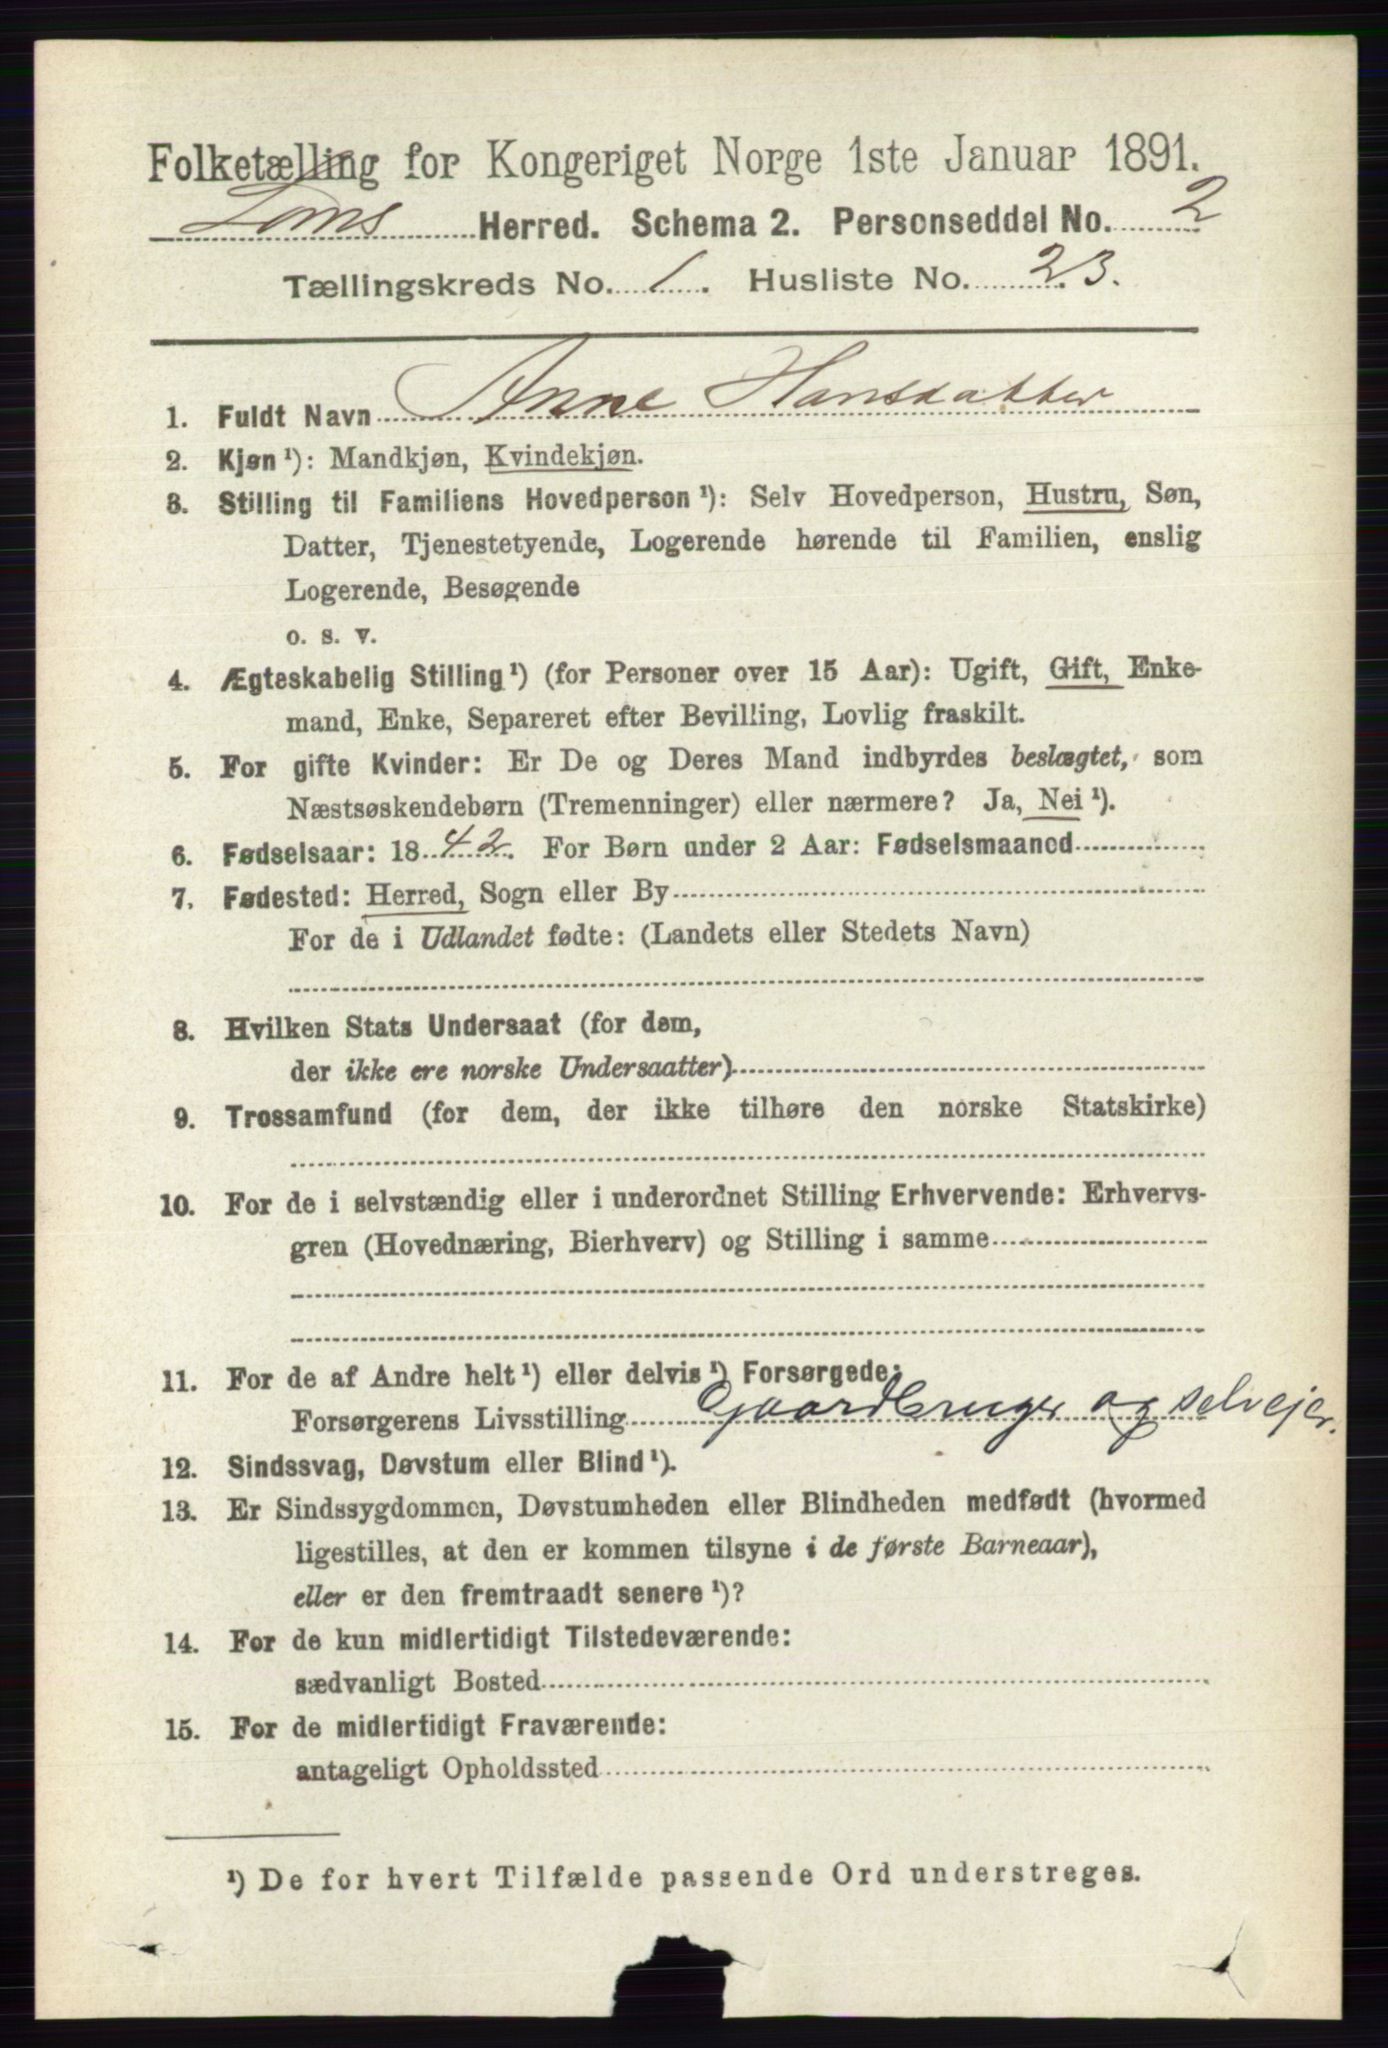 Folketælling for Kongeriget Norge 1ste Januar 1891.
Loms Herred. Schema 2. Personseddel No. 2
Tællingskreds No. 1. Husliste No. 23.
1. Fuldt Navn Anne Hansdatter
2. Kjøn¹): Mandkjøn, Kvindekjøn.
3. Stilling til Familiens Hovedperson¹): Selv Hovedperson, Hustru, Søn,
Datter, Tjenestetyende, Logerende hørende til Familien, enslig
Logerende, Besøgende
o. s. v.
4. Ægteskabelig Stilling¹) (for Personer over 15 Aar): Ugift, Gift, Enke-
mand, Enke, Separeret efter Bevilling, Lovlig fraskilt.
5. For gifte Kvinder: Er De og Deres Mand indbyrdes beslægtet, som
Næstsøskendebørn (Tremenninger) eller nærmere? Ja, Nei¹).
6. Fødselsaar: 1842. For Børn under 2 Aar: Fødselsmaaned
7. Fødested: Herred, Sogn eller By
For de i Udlandet fødte: (Landets eller Stedets Navn)
8. Hvilken Stats Undersaat (for dem,
der ikke ere norske Undersaatter)
9. Trossamfund (for dem, der ikke tilhøre den norske Statskirke)
10. For de i selvstændig eller i underordnet Stilling Erhvervende: Erhvervs-
gren (Hovednæring, Bierhverv) og Stilling i samme
11. For de af Andre helt¹) eller delvis¹) Forsørgede:
Forsørgerens Livsstilling Gaardbruger og selvejer.
12. Sindssvag, Døvstum eller Blind¹).
13. Er Sindssygdommen, Døvstumheden eller Blindheden medfødt (hvormed
ligestilles, at den er kommen tilsyne i de første Barneaar),
eller er den fremtraadt senere¹)?
14. For de kun midlertidigt Tilstedeværende:
sædvanligt Bosted
15. For de midlertidigt Fraværende:
antageligt Opholdssted
¹) De for hvert Tilfælde passende Ord understreges.